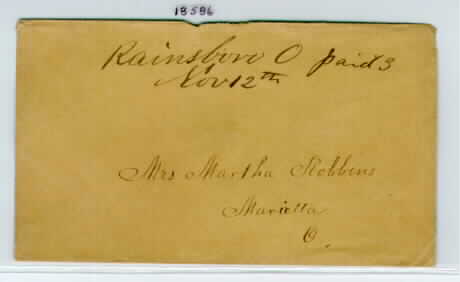 13596
Rainsboro O paid 3
Nov 12th
Mrs Martha Robbins
Marietta
O.